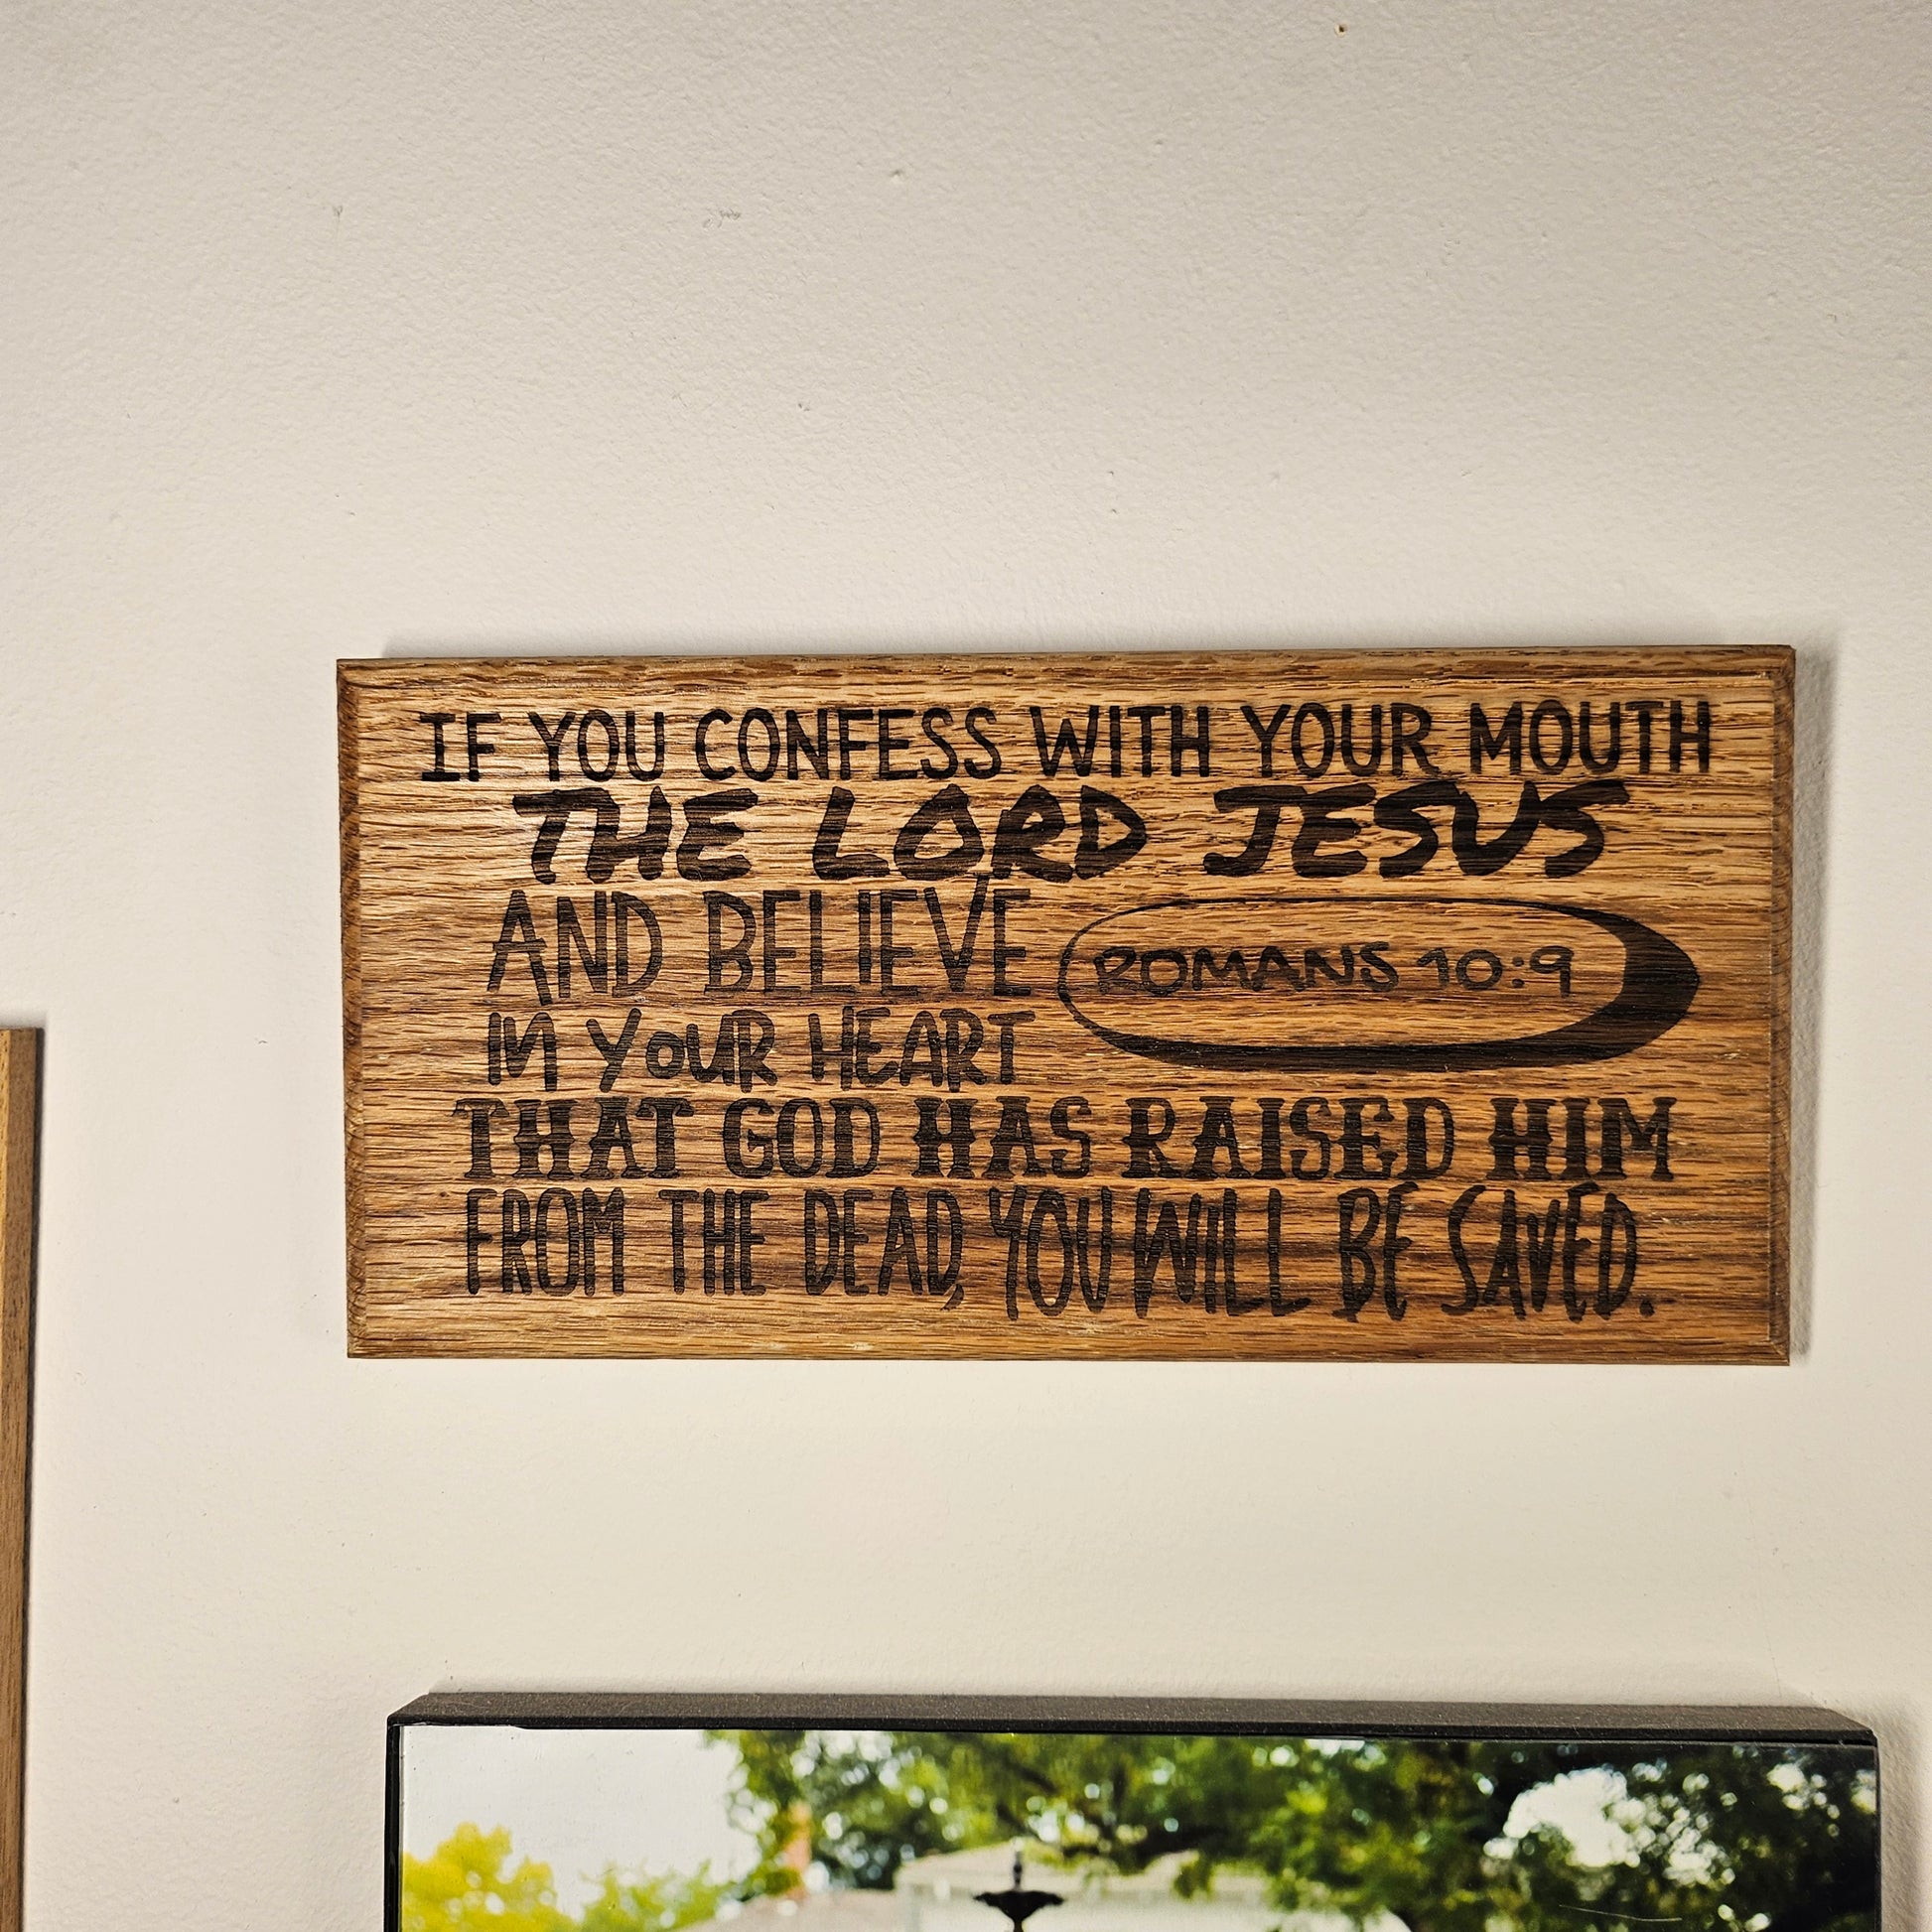 IF YOU CONFESS WITH YOUR MOUTH
THE LORD JESUS
AND BELIEVE
IN YOUR HEART
ROMANS 10:9
THAT GOD HAS RAISED HIM
FROM THE DEAD, YOU WILL BE SAVED.